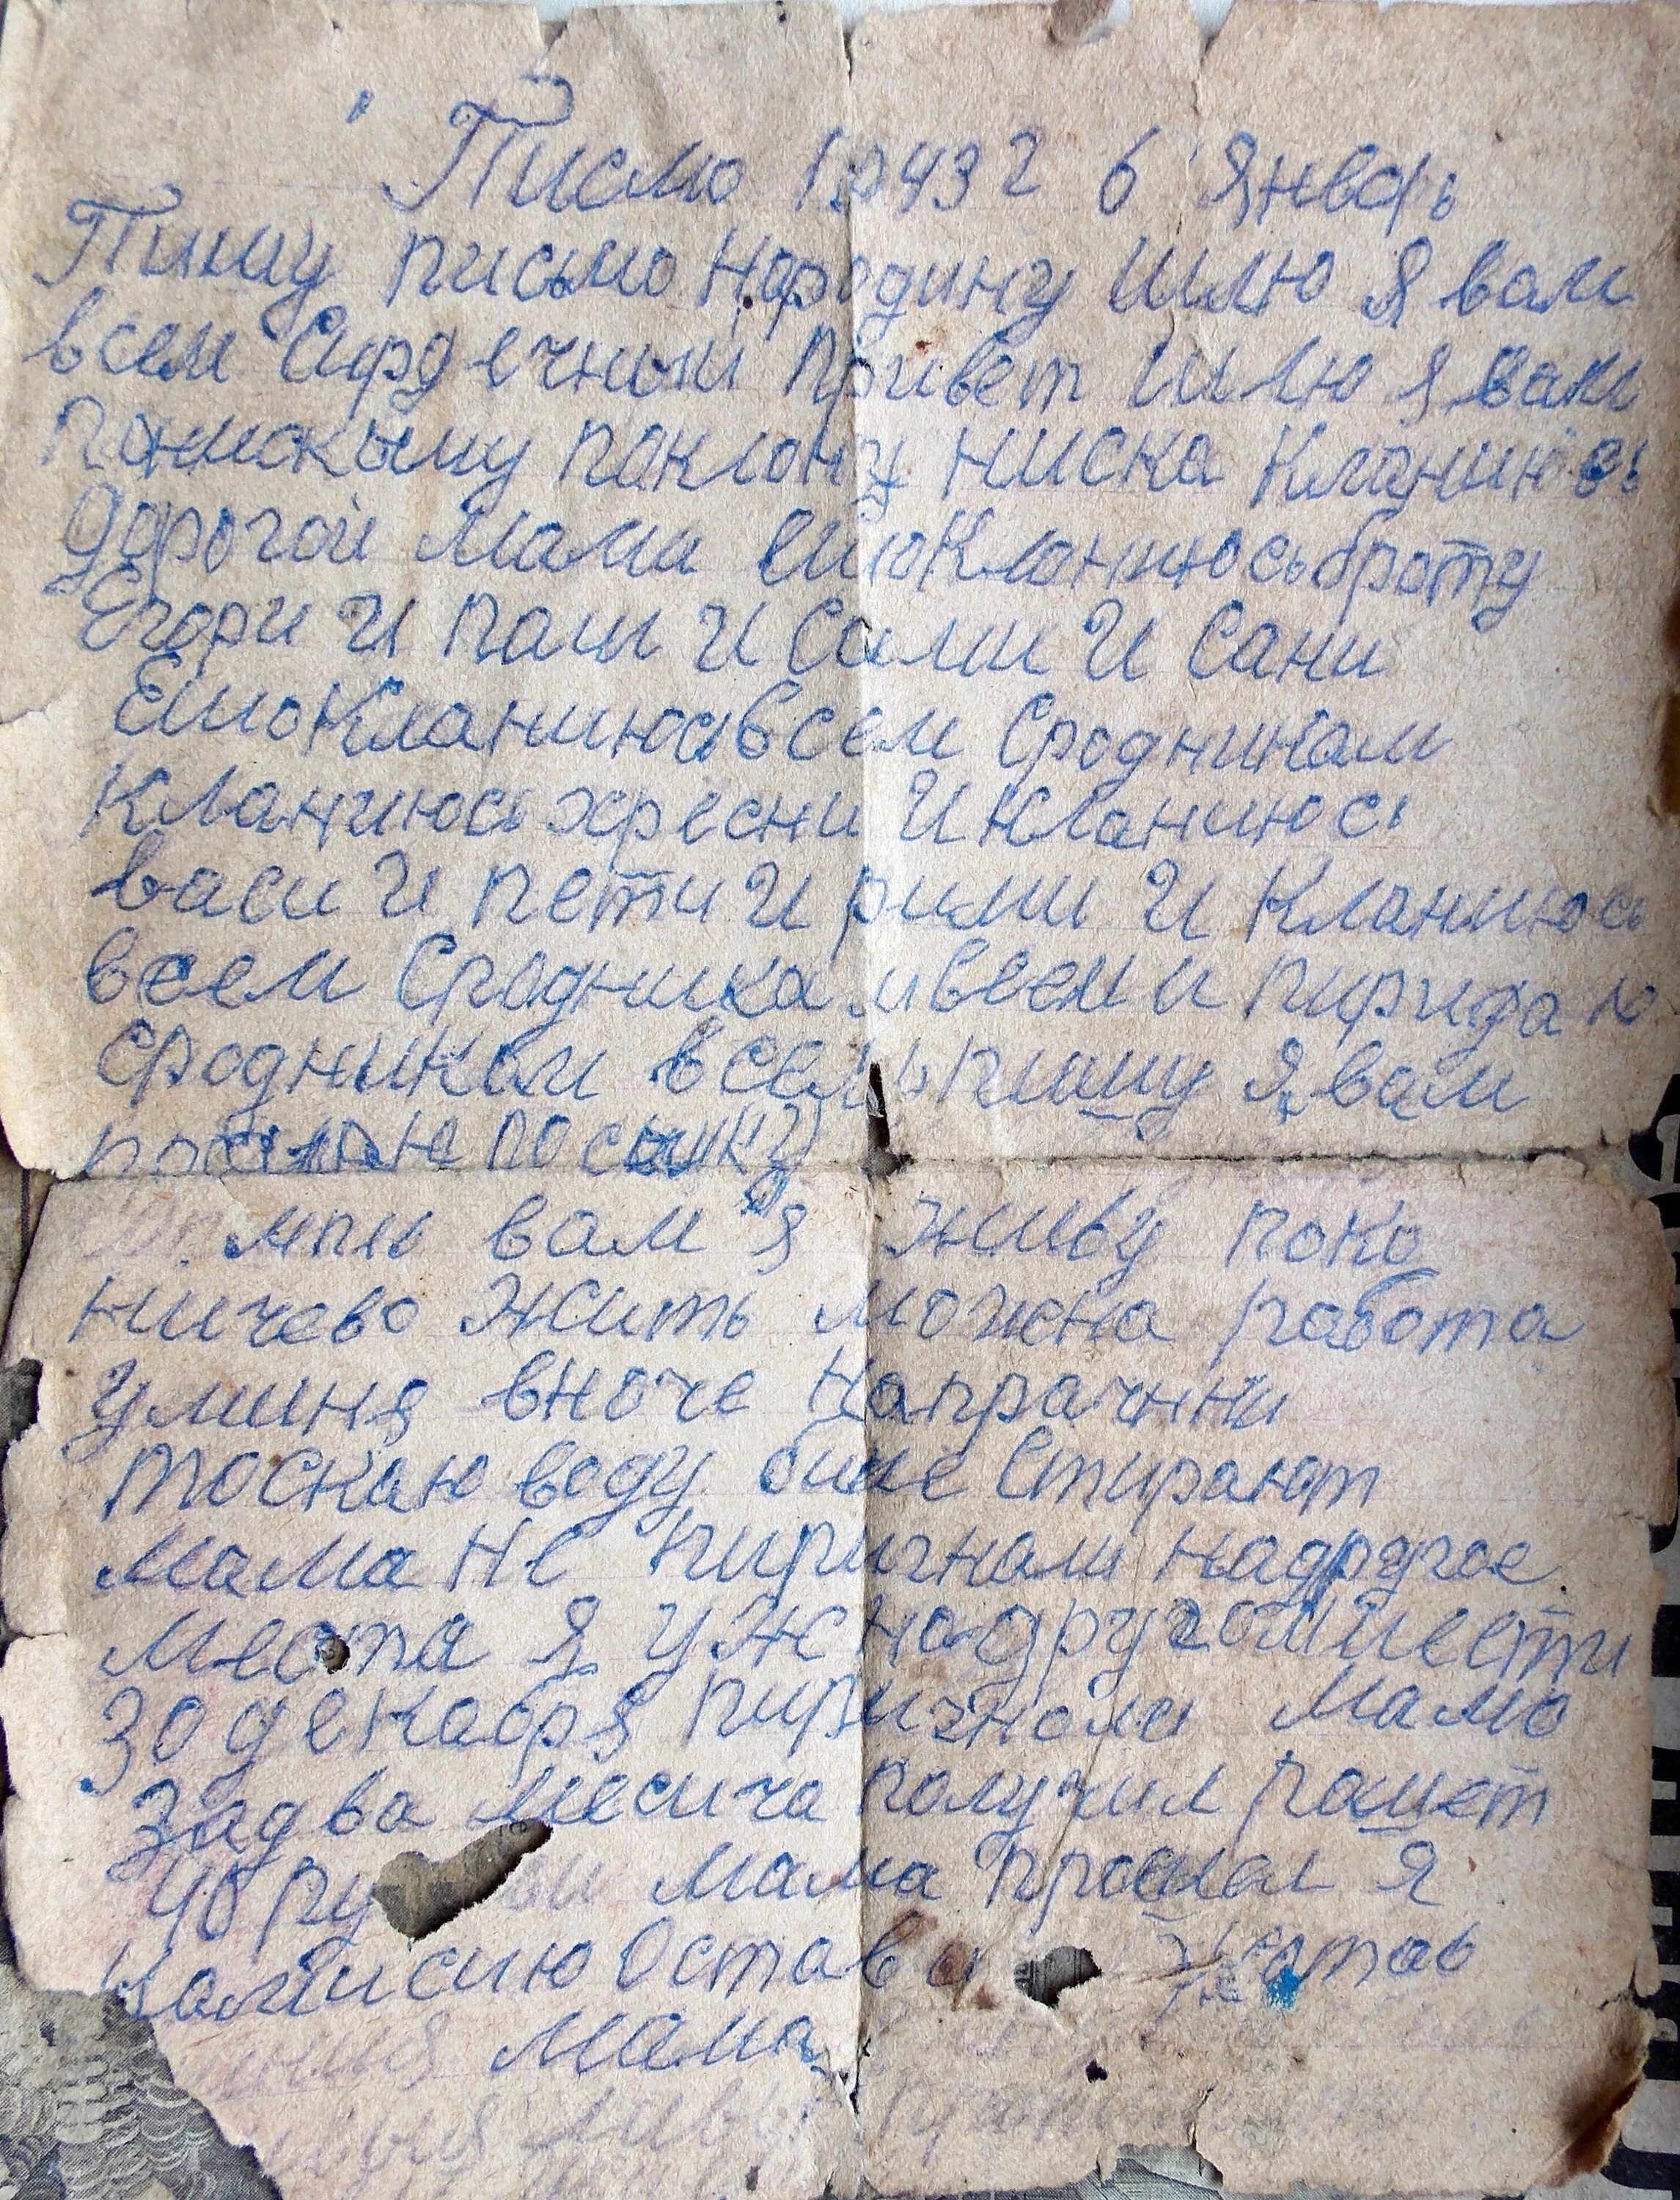 Писмо 1943 г 6 Январь
Пишу письмо народину Шлю Я вам
всем Сирдечный привет Шлю я вам
понискыму поклону ниска Кланиюсь
дорогой мами ешоКланиюсьброту
Егори И паши И Сами И Сани
ЕшоКланиюсьвсем Сродникам
Кланиюсь хресни И Кланиюсь
васи И пети И рими И Кланиюсь
всем Сродникам всем и пиридаю
Сродникам всем пишу Я вам
посилку
вам я живу поко
ничево жить можна работа
уминя вноче напрачнни
тоскаю воду Стирают
мама Не пиригнали надругое
места Я уже надругоммести
30 декабря пиригнали Мама
Задва месица получил ращет
40 ру мама прошол Я
Камисию Остав
мама